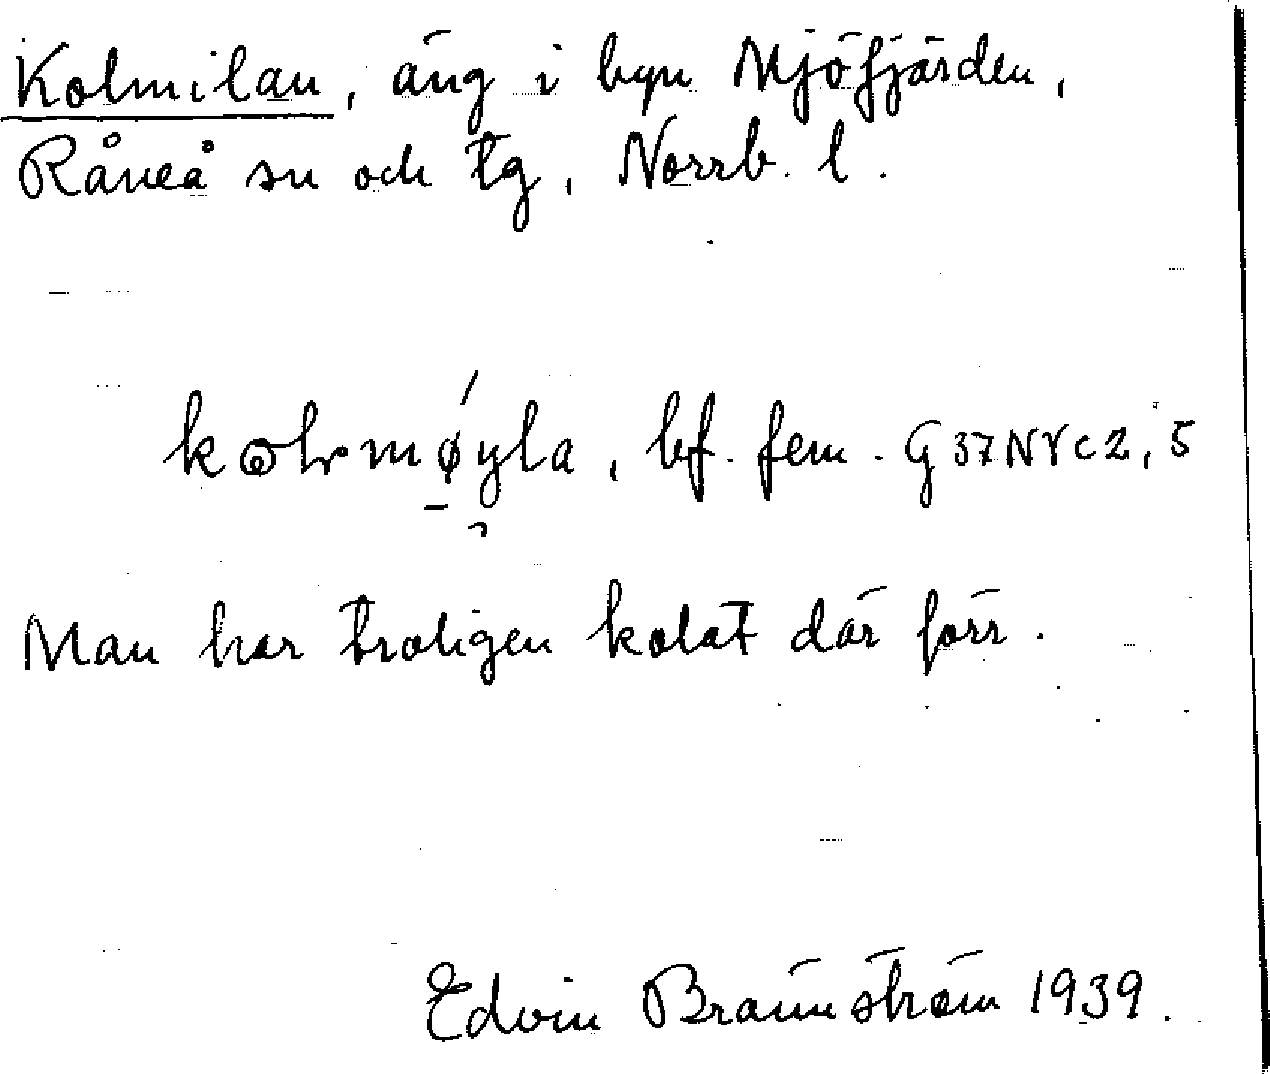 Kolmilan, äng i byn Mjöfjärden,
Råneå sn och tg, Norrb. l.
bf. fem. G37NVc2,5
Man har troligen kolat där förr.
Edvin Brännström 1939.